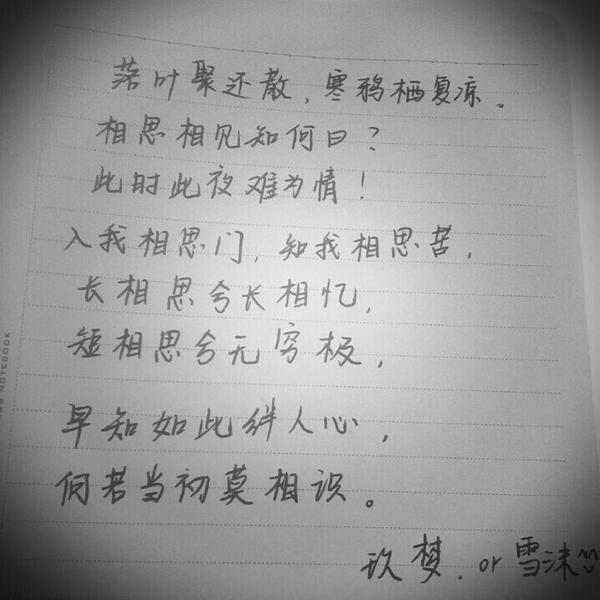 落叶聚还散，寒鸦栖复凉。
相思相见知何日？
此时此夜难为情！
入我相思门，知我相思苦，
长相思兮长相忆，
短相思兮无穷极，
早知如此绊人心，
何若当初莫相识。
玖梦．or 雪沫
NOTEBOOK